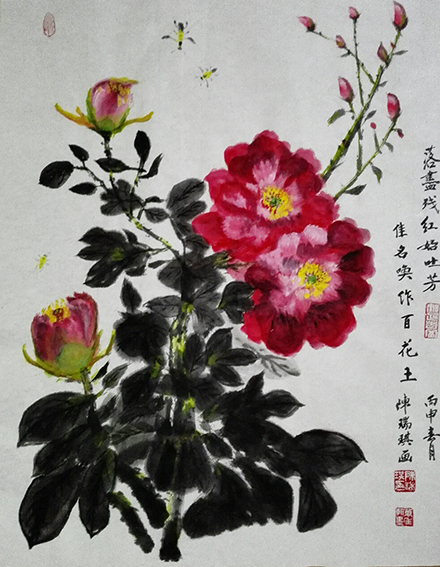 落盡残红始吐芳
丙申春月
佳名唤作百花王
陳瑞琪画